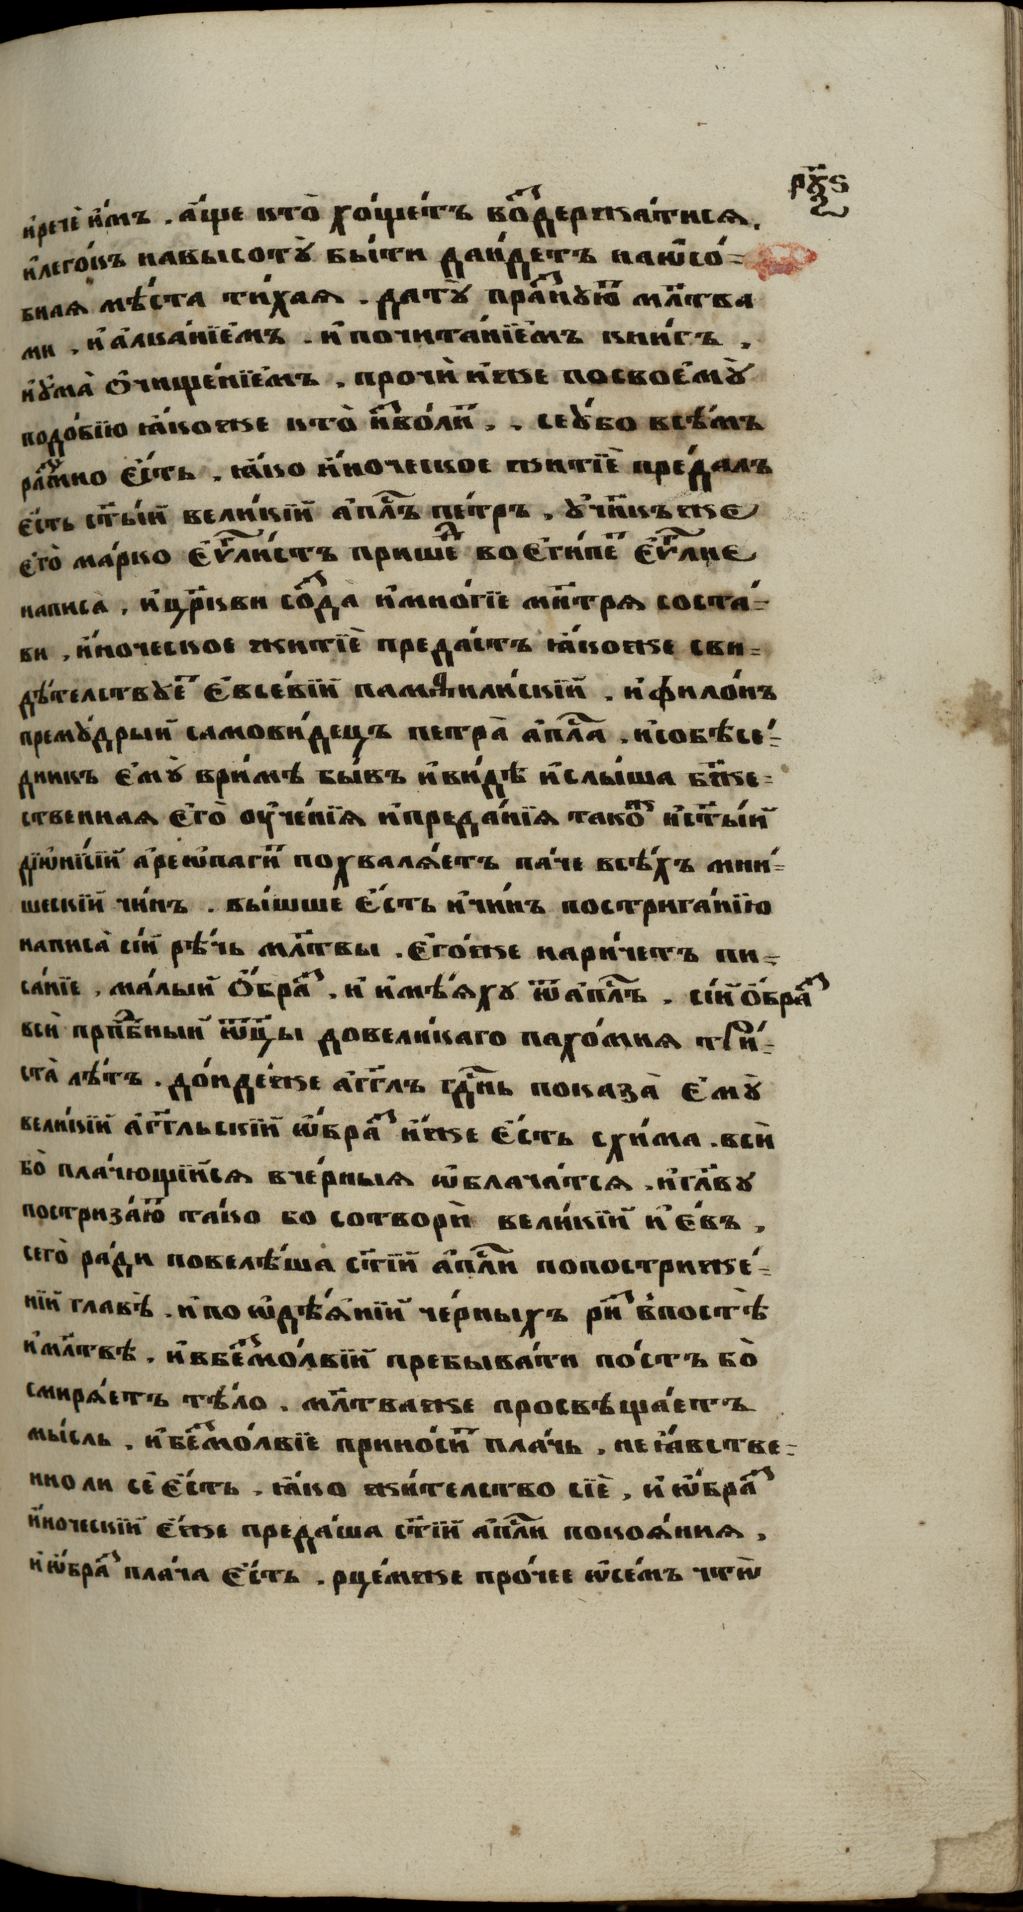 рч҃ѕ
и҆речѐ и҆́мъ . а҆́ще кто̀ хо́щетъ воздержа́тисѧ,
и҆лего́къ навысотꙋ̀ бы́ти да и҆́детъ наѡ҆со́=
бнаѧ мѣ́ста ти́хаѧ . датꙋ̀ пра́зднꙋютъ мл҃тва
ми , и҆ а҆лка́нїемъ . и҆ почита́нїемъ кни́гъ ,
и҆ꙋ҆ма̀ ѻ҆чище́нїемъ , про́чїи и҆́же посвоемꙋ̀
подо́бїю ꙗ҆́коже кто̀ и҆зво́литъ . , се ꙋ҆́бо всѣ́мъ
ра́зꙋмно є҆́сть , ꙗ҆́ко и҆́ноческое житїѐ преда́лъ
є҆́сть ст҃ы́й вели́кїй а҆пⷭ҇лъ пе́тръ , ᲂу҆чн҃къже
є҆го̀ ма́рко є҆ѵⷢ҇ли́стъ прише́дъ во є҆ги́петъ є҆ѵⷢ҇лие
написа̀ , и҆ цр҃кви созда̀ и҆ мно́гїе мн҃трѧ соста́=
ви , и҆́ноческое житїѐ преда́стъ ꙗ҆́коже сви=
дѣ́тельствꙋетъ є҆ѵсе́вїй памѳили́скїй . и҆ фило́нъ
премꙋ́дрый самови́децъ петра̀ а҆пⷭ҇ла , и҆ собѣсѣ́=
дникъ є҆мꙋ̀ ври́мѣ бы́въ и҆ ви́дѣ и҆ слы́ша бж҃е=
ственнаѧ є҆го̀ ᲂу҆че́нїѧ и҆ преда́нїѧ тако́ж и҆ ст҃ы́й
дїѡни́сїй а҆реѡпаги́тъ похвалѧ́етъ па́че всѣ́хъ мни=
шескїй чи́нъ . вы́шше є҆́сть и҆ чи́нъ постриганїю
написа̀ сі́й рѣ́чь мл҃твы . є҆го́же нари́четъ пи=
са́нїе , ма́лый ѻ҆́браз , и҆ и҆мѣ́ѧхꙋ ѿ а҆пⷭ҇лъ , сі́й ѻ҆́браз
всѝ прпⷣбный ѻ҆ц҃ы̀ довели́каго пахо́миѧ три́=
ста лѣ́тъ . до́ндеже а҆́гг҃лъ гдⷭ҇нь показа̀ є҆мꙋ̀
вели́кїй а҆́гг҃льскїй ѡ҆́браз и҆́же є҆́сть схи́ма . всѝ
бо̀ пла́чющїисѧ вче́рныѧ ѡ҆блача́тсѧ . и҆ гл҃вꙋ
постриза́ютъ та́ко бо сотворѝ вели́кїй и҆́ѡвъ ,
сего̀ ра́ди повелѣ́ша ст҃ї́й а҆пⷭ҇ли попостриже́=
нїй главѣ̀ . и҆ по ѡ҆дѣѧ́нїй че́рныхъ ри́з в҆постѣ̀
и҆ мл҃твѣ , и҆ вбезмо́лвїй пребыва́ти по́стъ бо̀
смирѧ́етъ тѣ́ло . мл҃тваже просвѣща́етъ
мы́сль , и҆ безмо́лвїе прино́ситъ пла́чь , неꙗ҆́встве=
нно ли сѐ є҆́сть , ꙗ҆́ко жи́тельство сїѐ , и҆ ѡ҆́браз
и҆́ноческїй є҆́же преда́ша ст҃ї́й а҆пⷭ҇ли покоѧ́ниѧ ,
и҆ ѡ҆́браз пла́ча є҆́сть . рце́мже про́чее ѡ҆се́мъ чтѡ̀